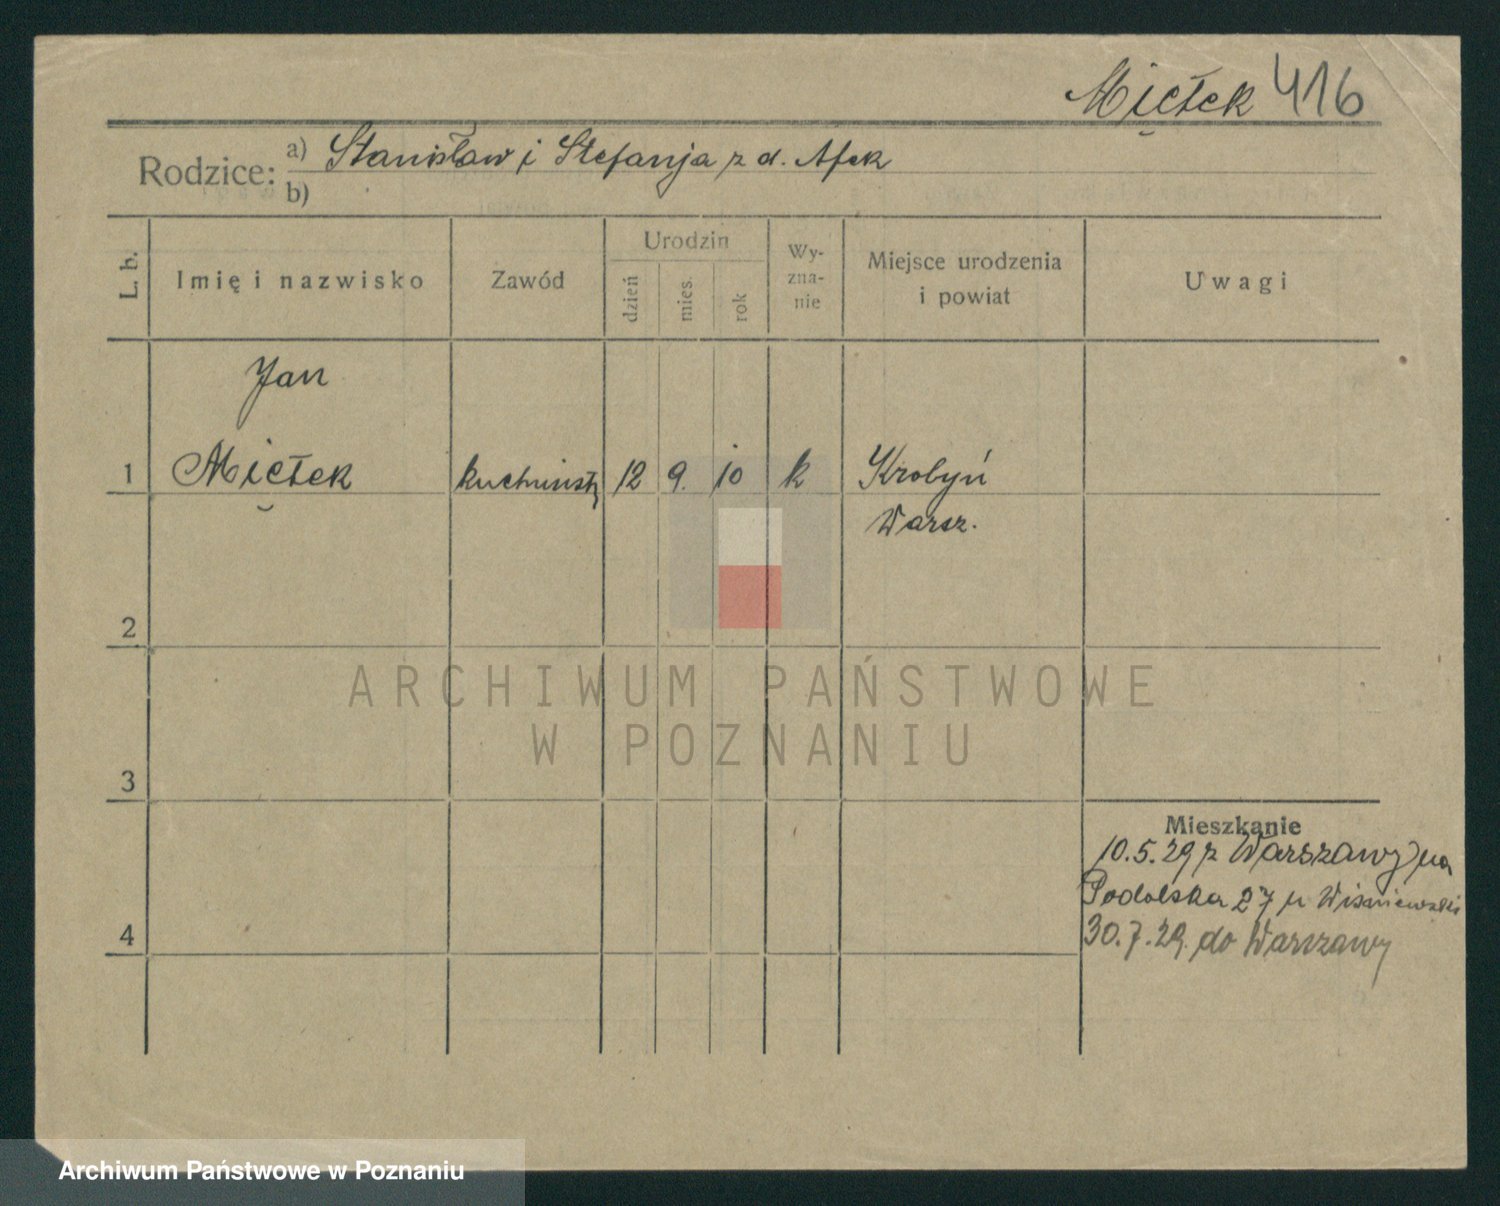 Miełek 416
Rodzice: a) Stanisław i Stefanja z d. Afek
b)
L. b.
Imię i nazwisko
Zawód
Urodzin
dzień
mies.
rok
Wy-
zna-
nie
Miejsce urodzenia
i powiat
Uwagi
Jan
1 Miełek kuchmistrz 12 9. 10 k Krobyń
Warsz.
2
ARCHIWUM PAŃSTWOWE
W POZNANIU
3
Mieszkanie
10.5.29 z Warszawy na
Podolska 27 u Wiśniewski
4
30.7.29. do Warszawy
Archiwum Państwowe w Poznaniu